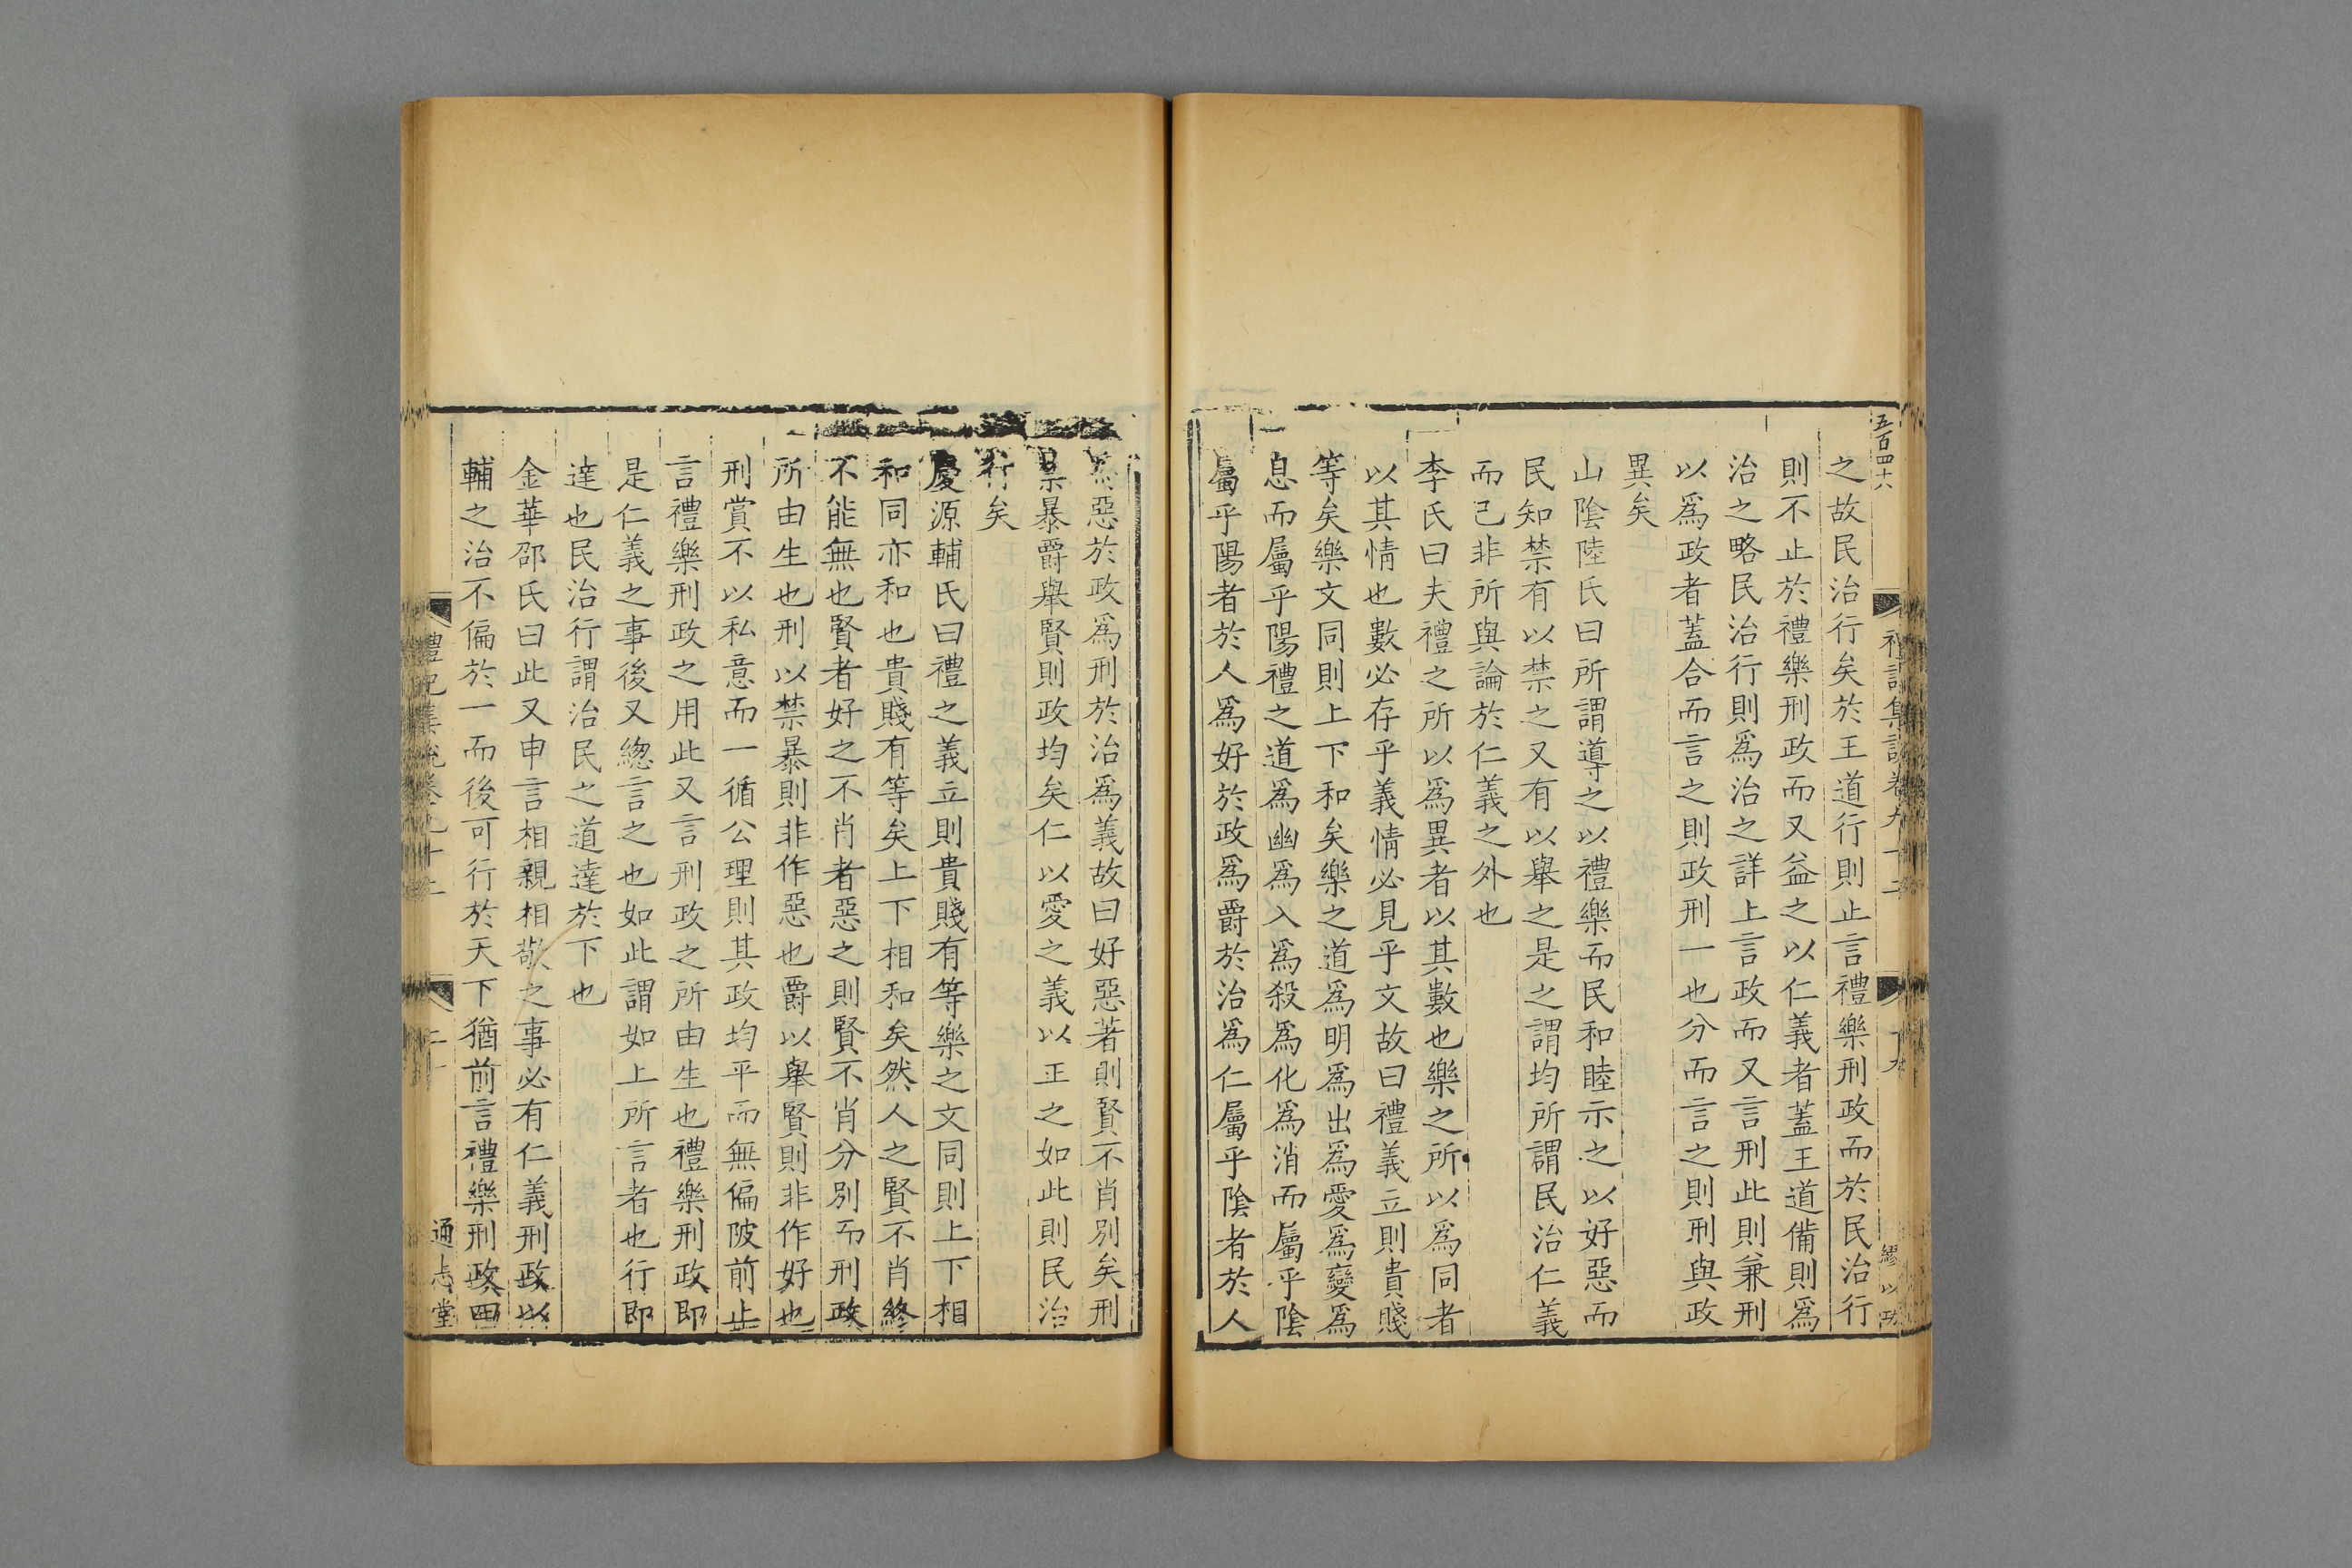 五百四十八
之故民治行矣於王道行則止言禮樂刑政而於民治行
則不止於禮樂刑政而又益之以仁義者蓋王道備則爲
治之略民治行則爲治之詳上言政而又言刑此則兼刑
以爲政者蓋合而言之則政刑一也分而言之則刑與政
異矣
山陰陸氏曰所謂導之以禮樂而民和睦示之以好惡而
民知禁有以禁之又有以舉之是之謂均所謂民治仁義
而已非所與論於仁義之外也
李氏曰夫禮之所以爲異者以其數也樂之所以爲同者
以其情也數必存乎義情必見乎文故曰禮義立則貴賤
等矣樂文同則上下和矣樂之道爲明爲出爲愛爲變爲
息而屬乎陽禮之道爲幽爲入爲殺爲化爲消而屬乎陰
屬乎陽者於人爲好於政爲爵於治爲仁屬乎陰者於人
爲惡於政爲刑於治爲義故曰好惡著則賢不肖別矣刑
禁暴爵舉賢則政均矣仁以愛之義以正之如此則民治
行矣
慶源輔氏曰禮之義立則貴賤有等樂之文同則上下相
和同亦和也貴賤有等矣上下相和矣然人之賢不肖終
不能無也賢者好之不肖者惡之則賢不肖分別而刑政
所由生也刑以禁暴則非作惡也爵以舉賢則非作好也
刑賞不以私意而一循公理則其政均平而無偏陂前止
言禮樂刑政之用此又言刑政之所由生也禮樂刑政即
是仁義之事後又總言之也如此謂如上所言者也行即
達也民治行謂治民之道達於下也
金華邵氏曰此又申言相親相敬之事必有仁義刑政以
輔之治不偏於一而後可行於天下猶前言禮樂刑政四
禮記集說卷九十二
通志堂